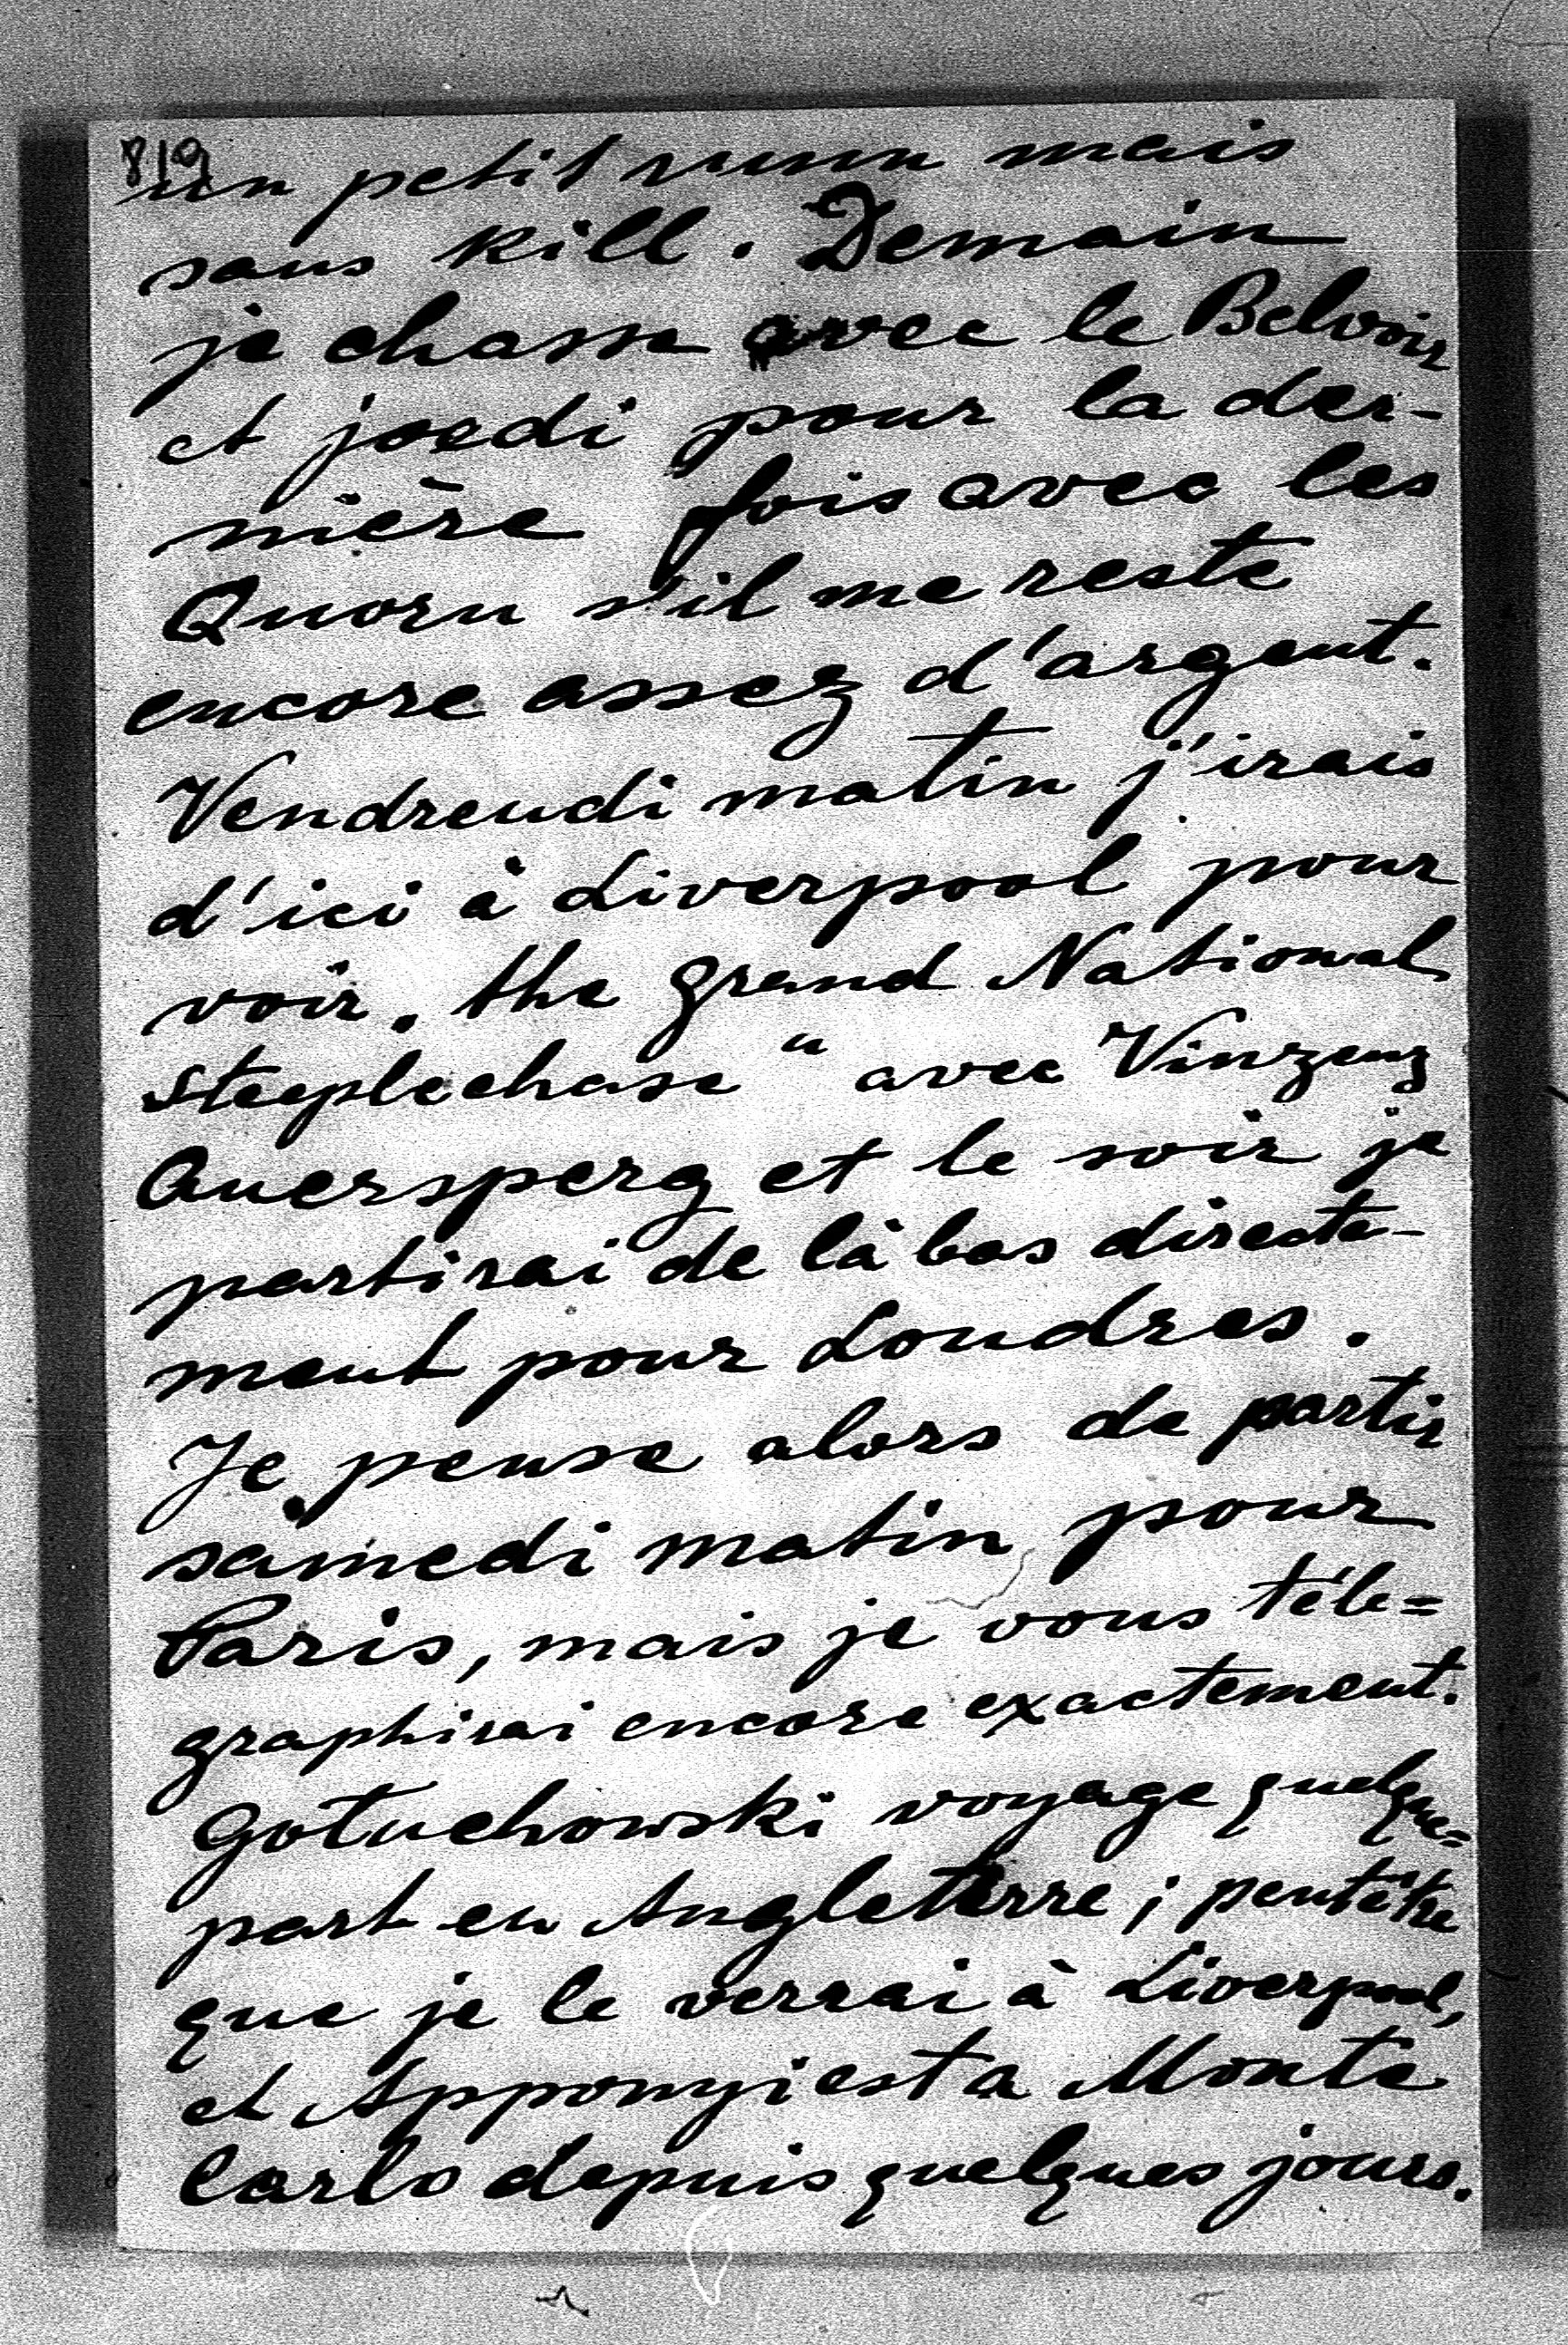 819
un petit runn mais
sans kill. Demain
je chasse avec le Belvoir
et joedi pour la der-
nière fois avec les
Quorn s'il me reste
encore assez d'argent.
Vendreudi matin j'irais
d'ici à Liverpool pour
voir „the grand National
steeplechase“ avec Vinzenz
Auersperg et le soir je
partirai de là bas directe-
ment pour Londres.
Je pense alors de partir
samedi matin pour
Paris, mais je vous téle=
graphirai encore exactement.
Gotuchowski voyage quelque=
part en Angleterre; peutêtre
que je le verrai à Liverpool,
et Apponyi est a Monte
Carlo depuis quelques jours.